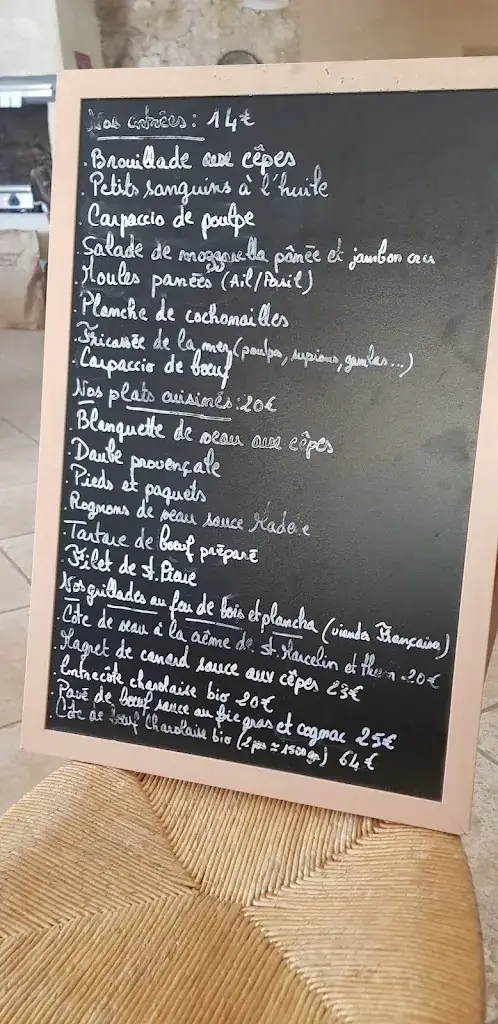 Nos entrées : 14€
. Brouillade aux cêpes
. Petits sanguins à l'huile
. Carpaccio de poulpe
. Salade de mozzarella pânée et jambon cru
. Moules panées (Ail/Persil)
. Planche de cochonailles
. Fricassée de la mer (poulpe, supions, gambas...)
. Carpaccio de bœuf
Nos plats cuisinés : 20€
. Blanquette de veau aux cêpes
. Daube provençale
. Pieds et paquets
. Rognons de veau sauce Madère
. Tartare de bœuf préparé
. Filet de St. Pierre
Nos grillades au feu de bois et plancha (viandes Française)
. Côte de veau à la crème de St. Marcelin et thym 20€
. Magret de canard sauce aux cêpes 23€
. Entrecôte charolaise bio 20€
. Pavé de bœuf sauce au foie gras et cognac 25€
. Côte de bœuf Charolaise bio (2 pers ≈ 1500gr) 64€